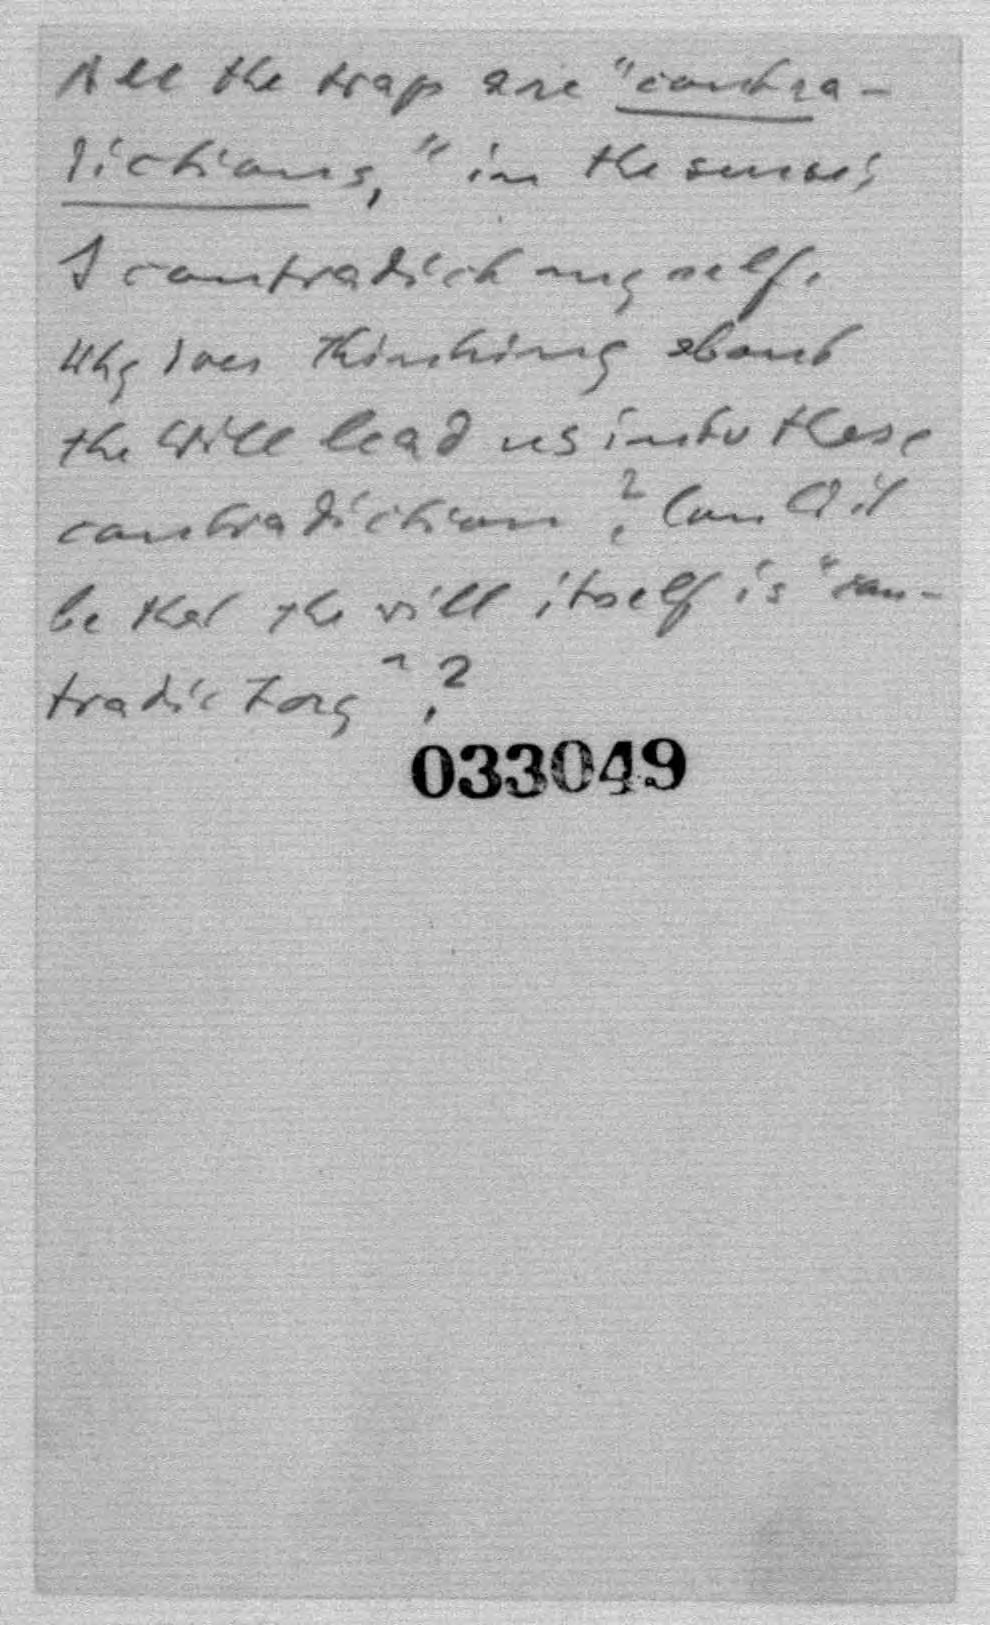 All the trap are "contra-
dictions," in the sense:
I contradict myself.
Why does thinking about
the Will lead us into these
contradiction? Could it
be that the will itself is "con-
tradictory"?
033049